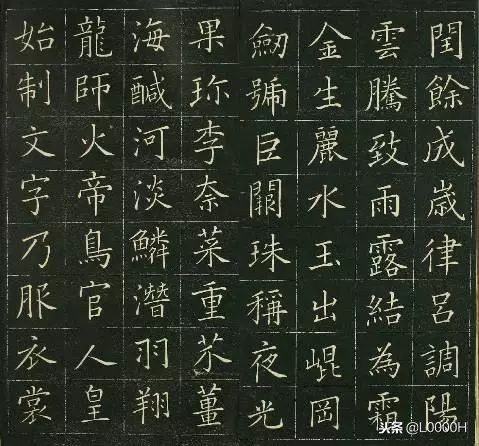 閏餘成歲律呂調陽
雲騰致雨露結為霜
金生麗水玉出崐岡
劒號巨闕珠稱夜光
果珎李柰菜重芥薑
海鹹河淡鱗潛羽翔
龍師火帝鳥官人皇
始制文字乃服衣裳
头条@L0000H